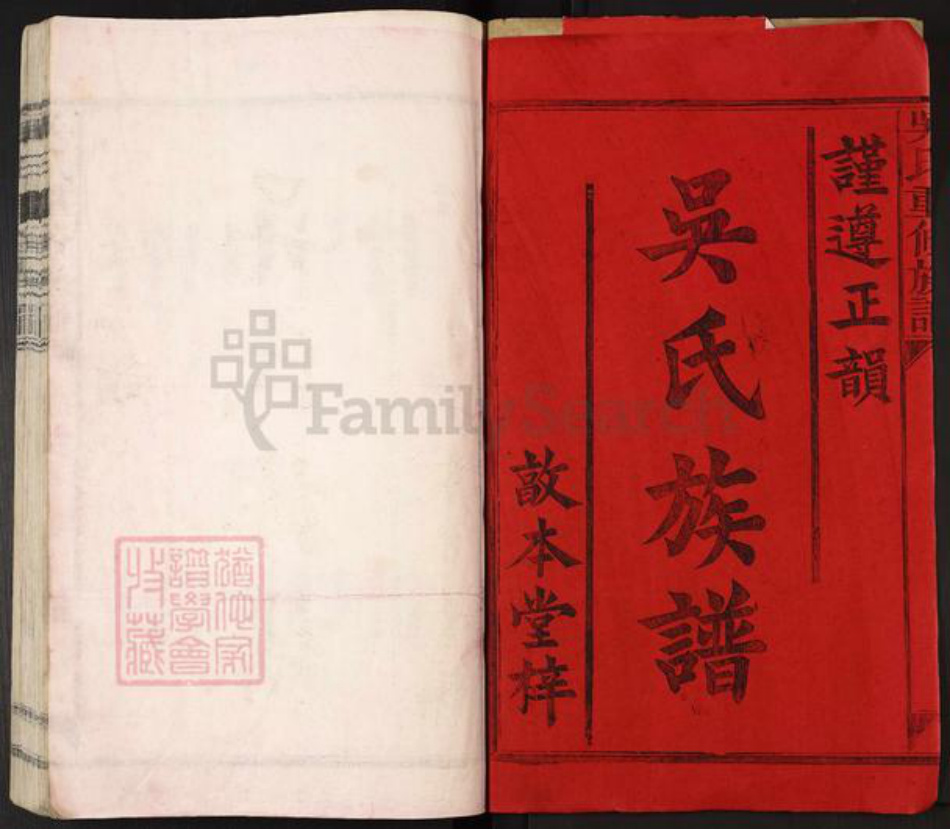 吳氏重修族譜
謹遵正韻
吳氏族譜
敦本堂梓
猶他家
譜學會
收藏
FamilySearch